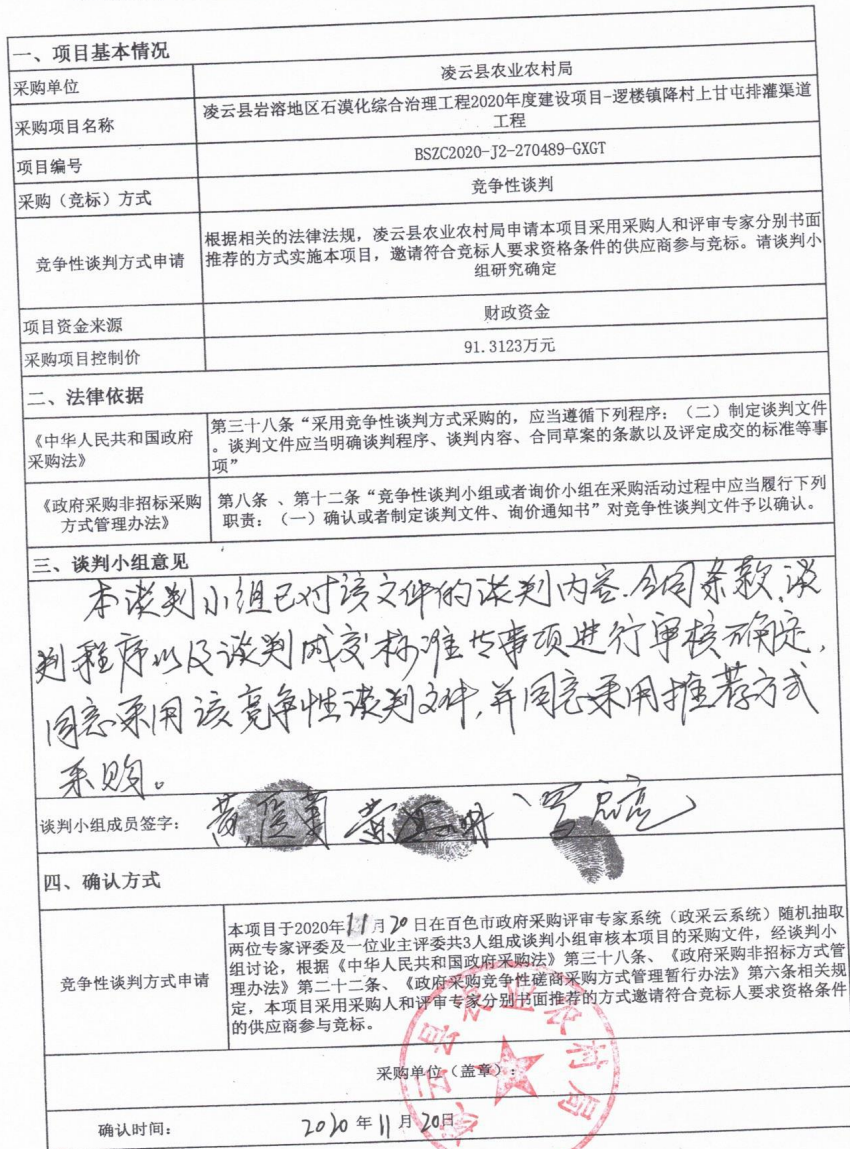 一、项目基本情况
采购单位
凌云县农业农村局
采购项目名称
凌云县岩溶地区石漠化综合治理工程2020年度建设项目-逻楼镇降村上甘屯排灌渠道
工程
项目编号
BSZC2020-J2-270489-GXGT
采购（竞标）方式
竞争性谈判
竞争性谈判方式申请
根据相关的法律法规，凌云县农业农村局申请本项目采用采购人和评审专家分别书面
推荐的方式实施本项目，邀请符合竞标人要求资格条件的供应商参与竞标。请谈判小
组研究确定
项目资金来源
财政资金
采购项目控制价
91.3123万元
二、法律依据
《中华人民共和国政府
采购法》
第三十八条“采用竞争性谈判方式采购的，应当遵循下列程序：（二）制定谈判文件
。谈判文件应当明确谈判程序、谈判内容、合同草案的条款以及评定成交的标准等事
项”
《政府采购非招标采购
方式管理办法》
第八条 、第十二条“竞争性谈判小组或者询价小组在采购活动过程中应当履行下列
职责：（一）确认或者制定谈判文件、询价通知书”对竞争性谈判文件予以确认。
三、谈判小组意见
本谈判小组已对该文件的谈判内容、合同条款、谈
判程序以及谈判成交标准等事项进行审核确定，
同意采用该竞争性谈判文件，并同意采用推荐方式
采购。
谈判小组成员签字：
四、确认方式
竞争性谈判方式申请
本项目于2020年11月20日在百色市政府采购评审专家系统（政采云系统）随机抽取
两位专家评委及一位业主评委共3人组成谈判小组审核本项目的采购文件，经谈判小
组讨论，根据《中华人民共和国政府采购法》第三十八条、《政府采购非招标方式管
理办法》第二十二条、《政府采购竞争性磋商采购方式管理暂行办法》第六条相关规
定，本项目采用采购人和评审专家分别书面推荐的方式邀请符合竞标人要求资格条件
的供应商参与竞标。
采购单位（盖章）：
凌云县农业农村局
确认时间：
2020年11月20日